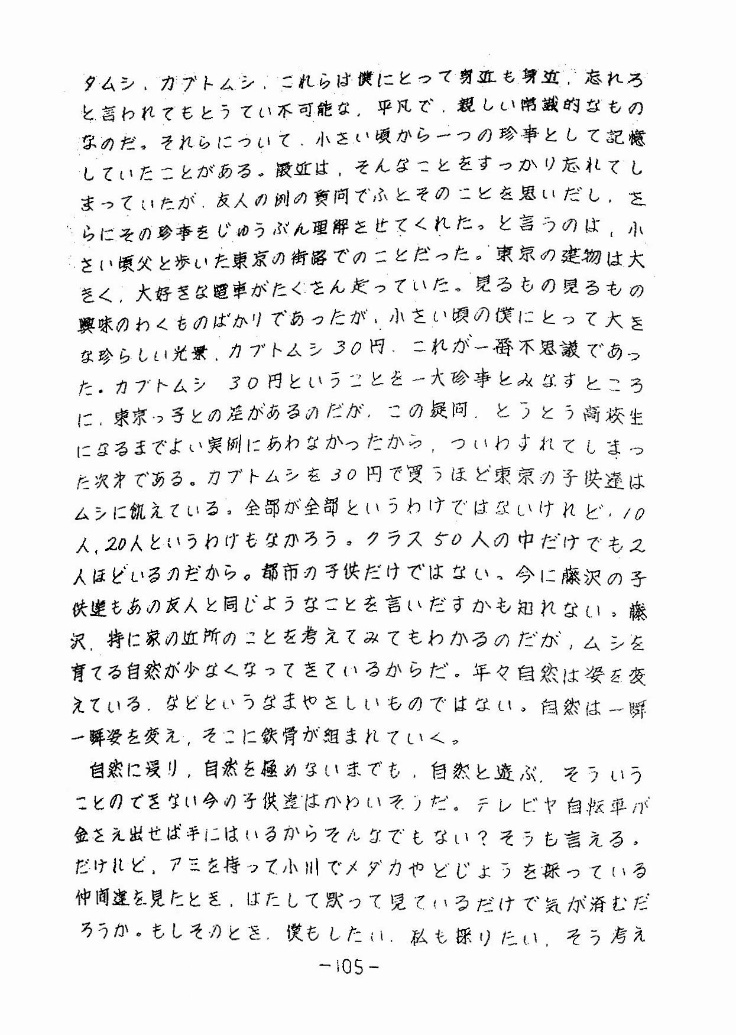 タムシ、カブトムシ、これらは僕にとって身近も身近、忘れろ
と言われてもとうてい不可能な、平凡で、親しい常識的なもの
なのだ。それらについて、小さい頃から一つの珍事として記憶
していたことがある。最近は、そんなことをすっかり忘れてし
まっていたが、友人の例の質問でふとそのことを思いだし、さ
らにその珍事をじゅうぶん理解させてくれた。と言うのは、小
さい頃父と歩いた東京の街路でのことだった。東京の建物は大
きく、大好きな電車がたくさん走っていた。見るもの見るもの
興味のわくものばかりであったが、小さい頃の僕にとって大き
な珍らしい光景、カブトムシ30円、これが一番不思議であっ
た。カブトムシ 30円ということを一大珍事とみなすところ
に、東京っ子との差があるのだが、この疑問、とうとう高校生
になるまでよい実例にあわなかったから、ついわすれてしまっ
た次才である。カブトムシを30円で買うほど東京の子供達は
ムシに飢えている。全部が全部というわけではないけれど、10
人、20人というわけもなかろう。クラス50人の中だけでも2
人ほどいるのだから。都市の子供だけではない。今に藤沢の子
供達もあの友人と同じようなことを言いだすかも知れない。藤
沢、特に家の近所のことを考えてみてもわかるのだが、ムシを
育てる自然が少なくなってきているからだ。年々自然は姿を変
えている、などというなまやさしいものではない。自然は一瞬
一瞬姿を変え、そこに鉄骨が組まれていく。
自然に浸り、自然を極めないまでも、自然と遊ぶ、そういう
ことのできない今の子供達はかわいそうだ。テレビヤ自転車が
金さえ出せば手にはいるからそんなでもない？そうも言える。
だけれど、アミを持って小川でメダカやどじょうを採っている
仲間達を見たとき、はたして黙って見ているだけで気が済むだ
ろうか。もしそのとき、僕もしたい、私も採りたい、そう考え
-105-